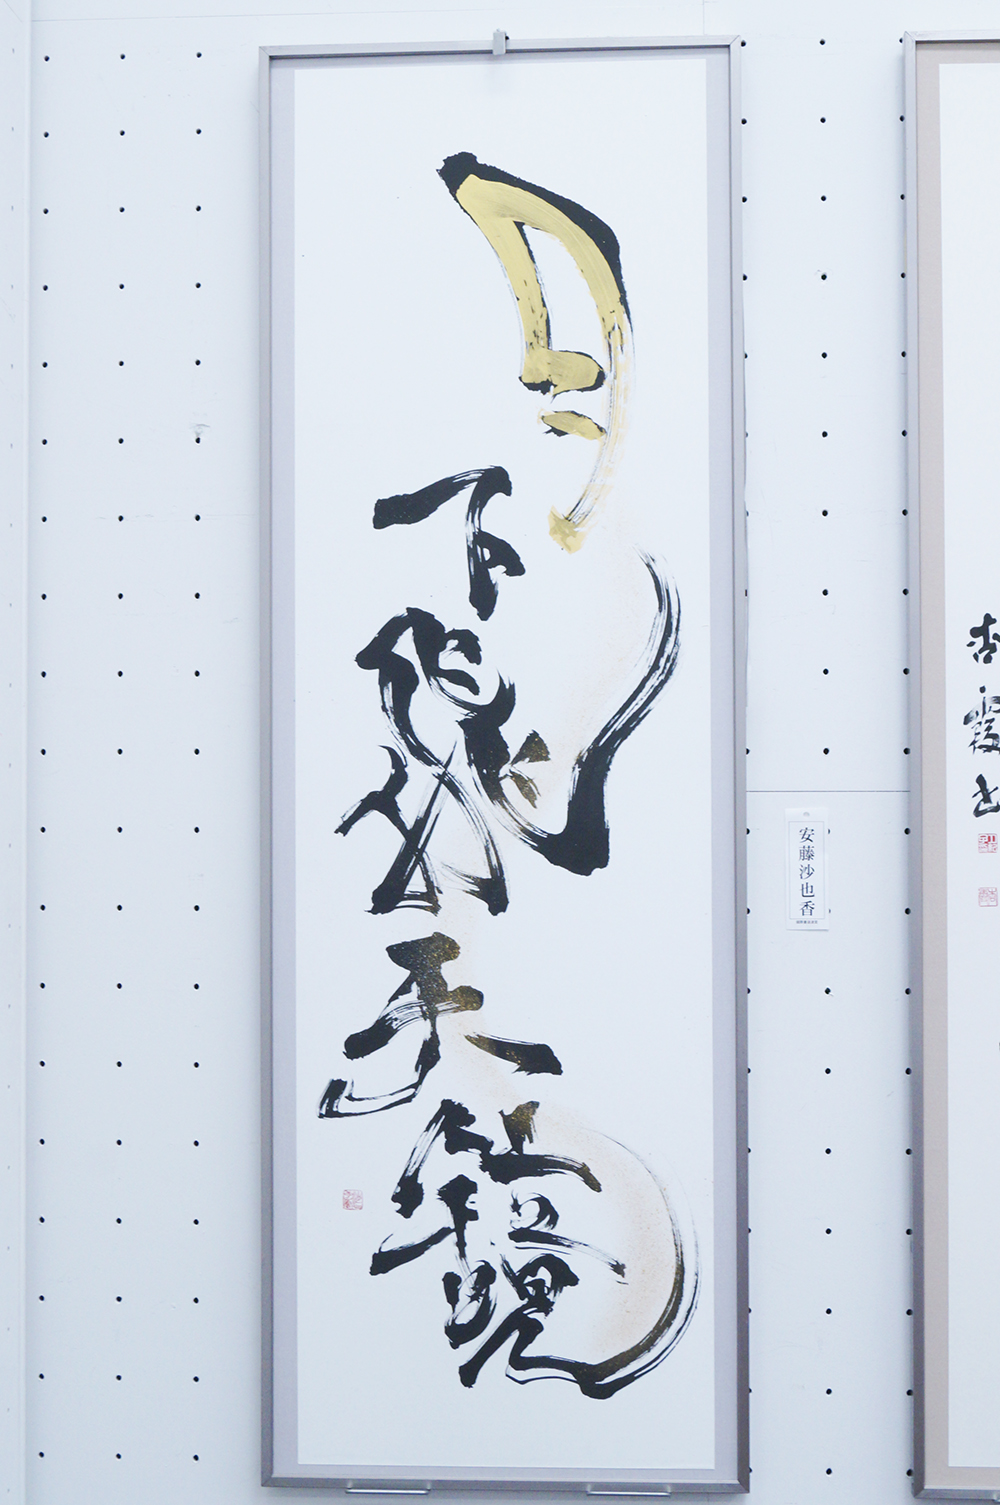 月下飛天鏡
安藤沙也香